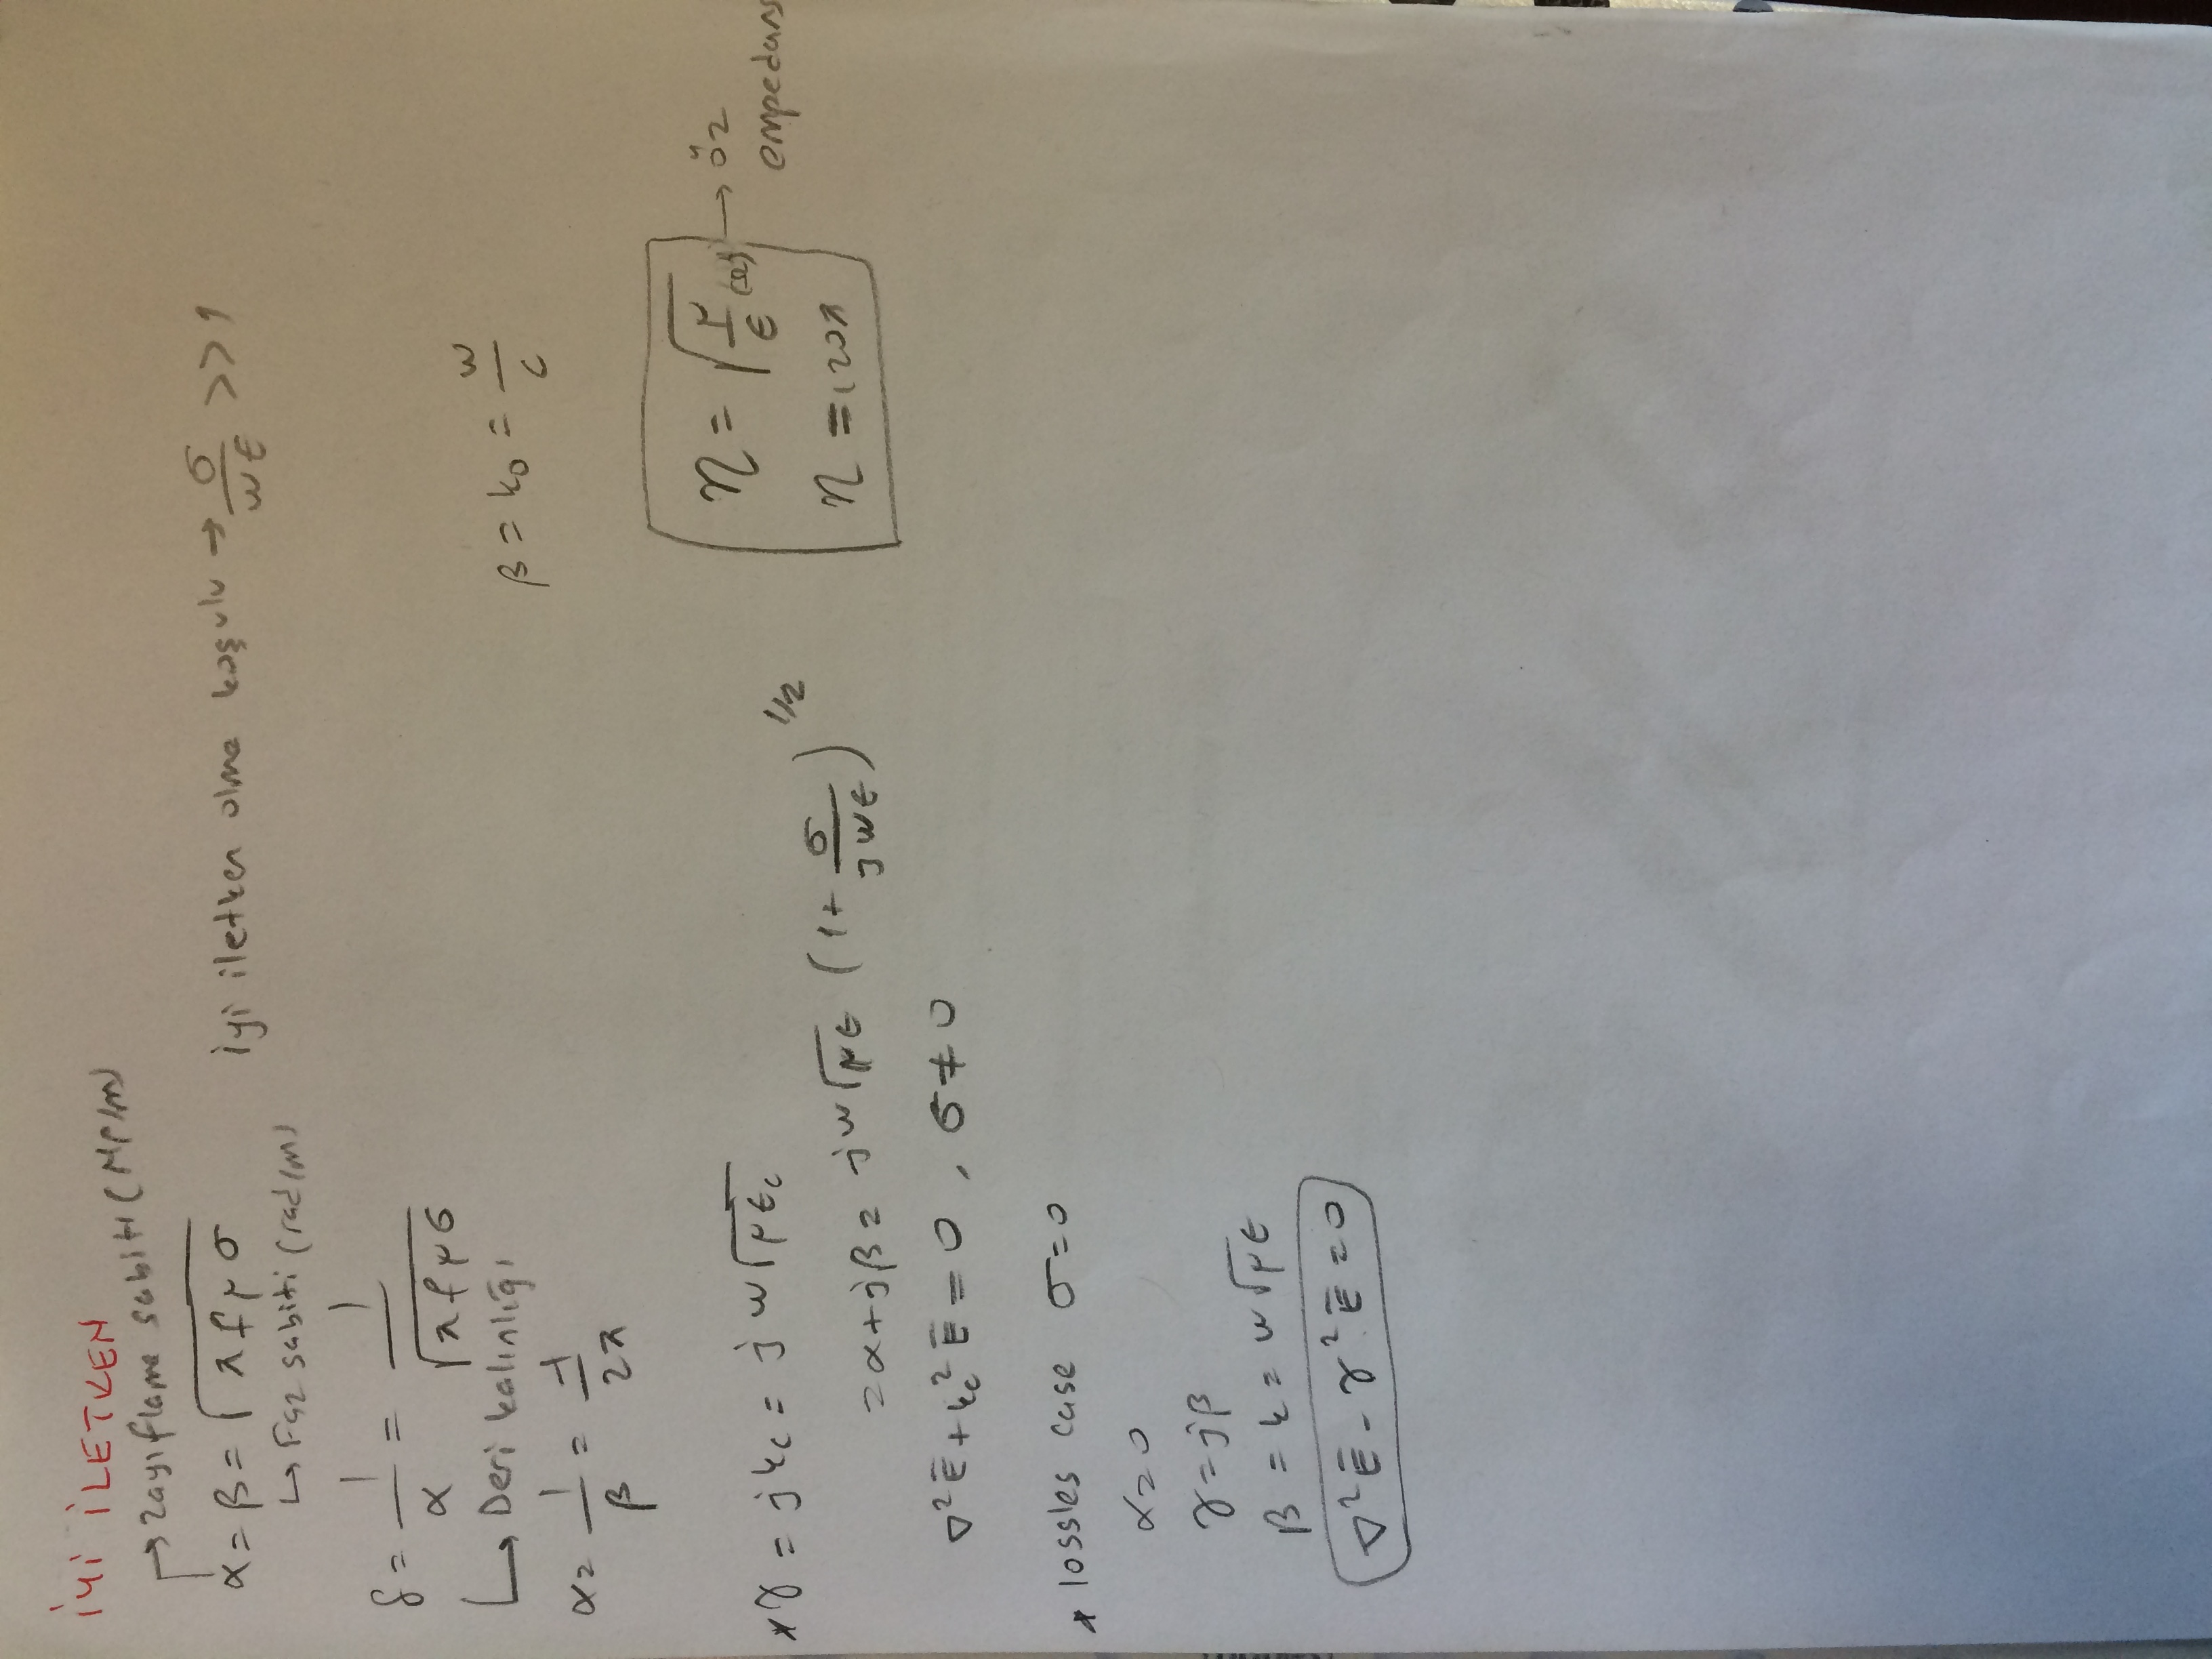 İYİ İLETKEN
→ Zayıflama sabiti (Np/m)
α = β = √(π f μ σ)
İyi iletken olma koşulu → σ/(wε) >> 1
↳ Faz sabiti (rad/m)
δ = 1/α = 1/√(π f μ σ)
↳ Deri kalınlığı
β = k₀ = w/c
α = 1/β = 1/2π
η = √(μ/ε) (Ω) → öz empedans
η = 120π
* γ = jk_c = jw√(με_c)
= α + jβ = jw√(με) (1 + σ/(jwε))^1/2
∇²Ē + k_c² Ē = 0 , σ ≠ 0
* lossles case σ = 0
α = 0
γ = jβ
β = k = w√(με)
∇²Ē - γ² Ē = 0